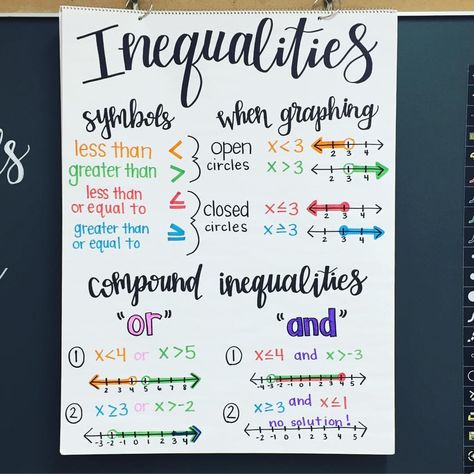 Inequalities
symbols
less than <
greater than >
less than or equal to ≤
greater than or equal to ≥
when graphing
open circles
x < 3
2 3 4
x > 3
2 3 4
closed circles
x ≤ 3
2 3 4
x ≥ 3
2 3 4
compound inequalities
"or"
① x<4 or x>5
② x≥3 or x>-2
-3 -2 -1 0 1 2 3 4
"and"
① x≤4 and x>-3
-4 -3 -2 -1 0 1 2 3 4 5
② x≥3 and x≤1
no solution!
-2 -1 0 1 2 3 4 5